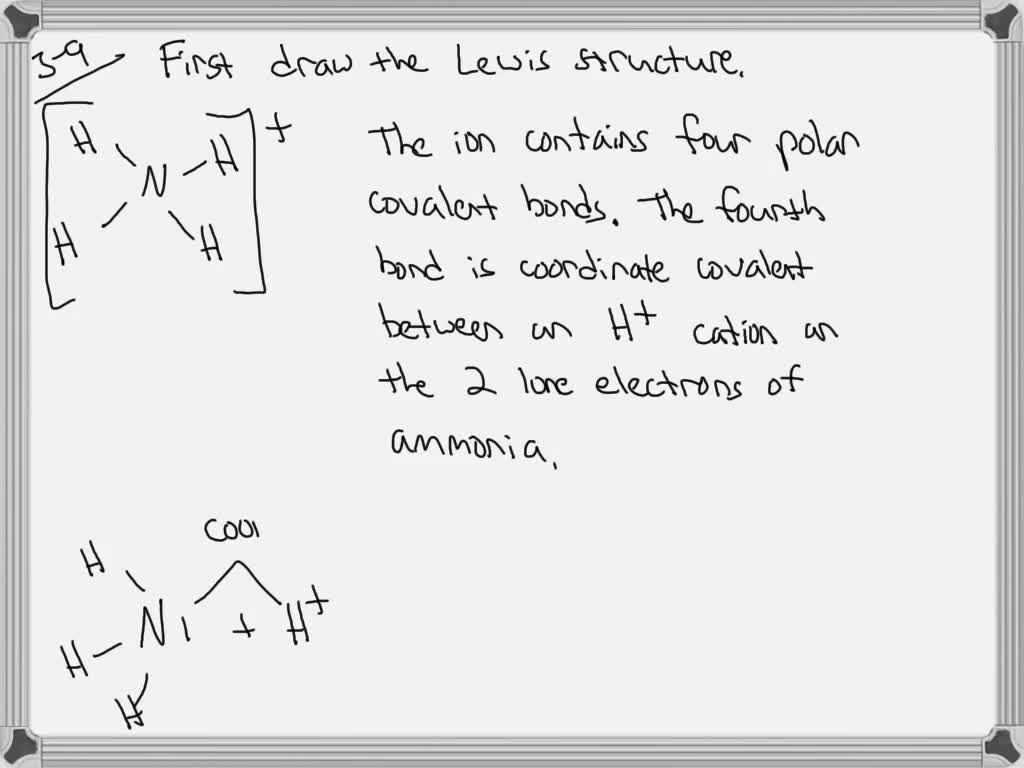 3-9 First draw the Lewis structure.
[ H H +
N
H H ]
The ion contains four polar
covalent bonds. The fourth
bond is coordinate covalent
between an H+ cation an
the 2 lone electrons of
ammonia.
coor
H
H - N + H+
H